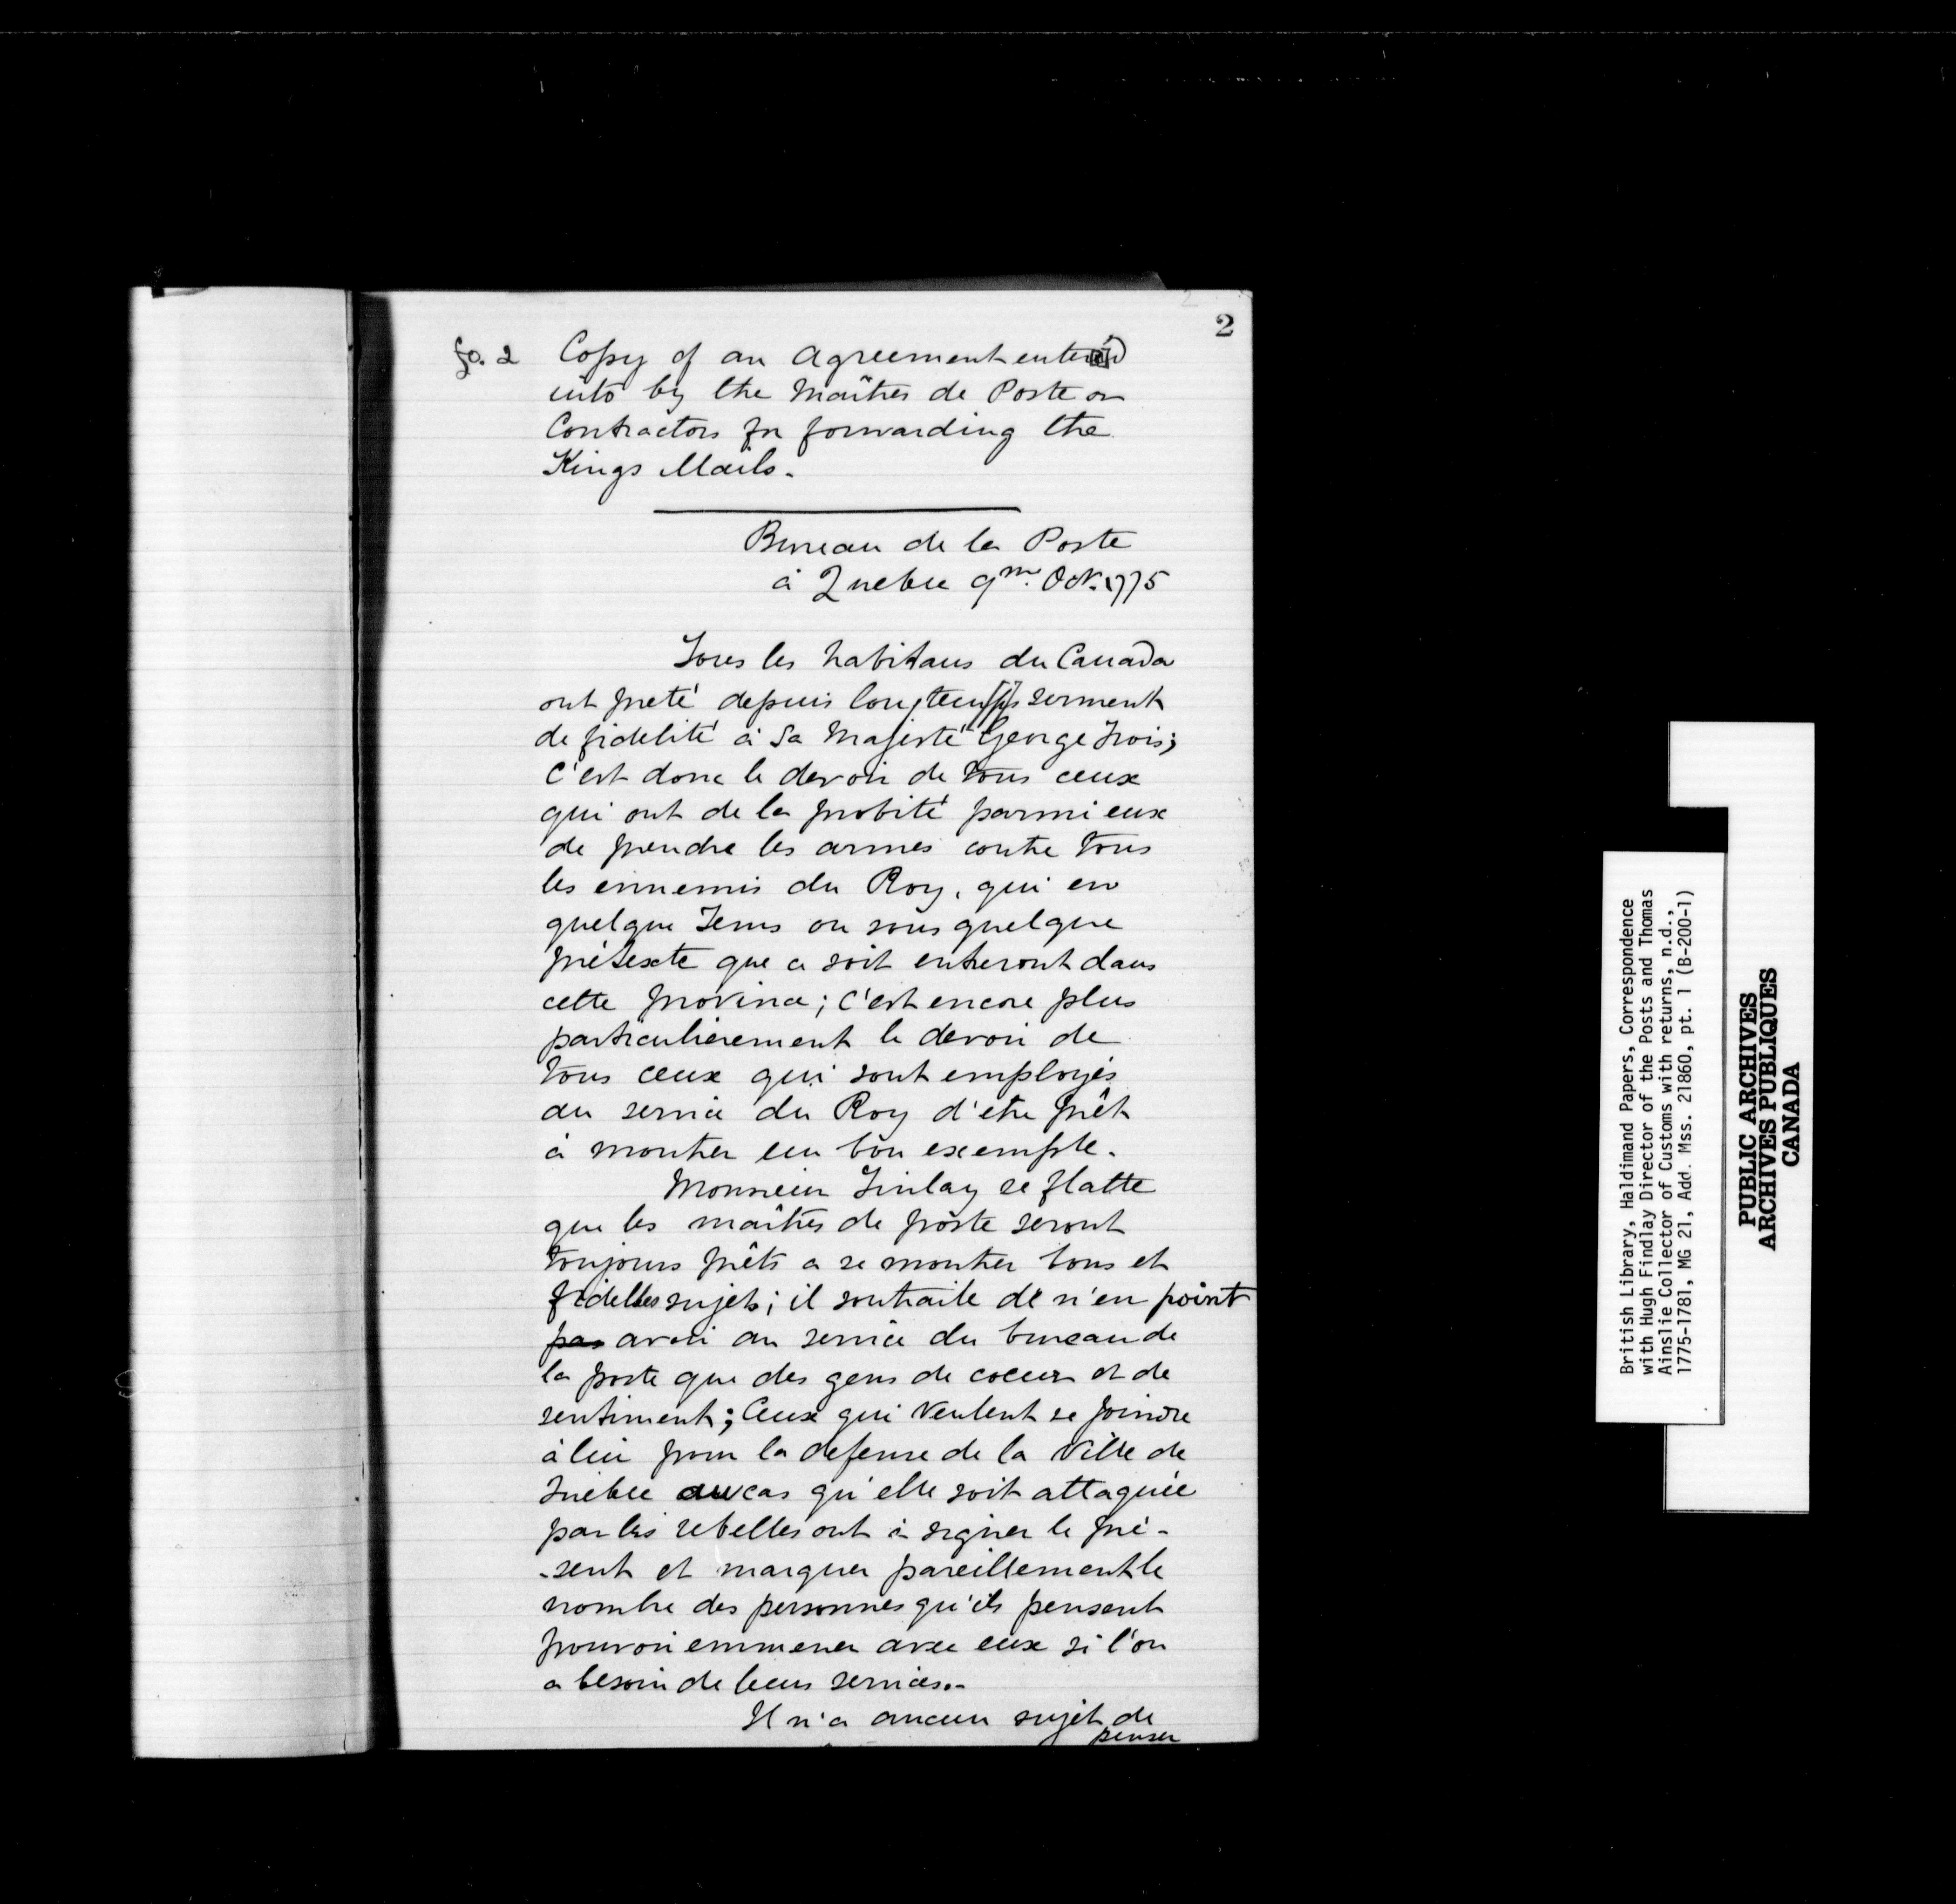 2
fo. 2 Copy of an Agreement entered
into by the Maîtres de Poste or
Contractors for forwarding the
Kings Mails.
Bureau de la Poste
à Quebec 9me. Oct. 1775
Tous les habitans du Canada
ont preté depuis longtem[p]s serment
de fidelité à Sa Majesté George Trois;
C'est donc le devoir de tous ceux
qui ont de la probité parmi eux
de prendre les armes contre tous
les ennemis du Roy, qui en
quelque Tems ou sous quelque
prétexte que ce soit entreront dans
cette province; C'est encore plus
particulièrement le devoir de
tous ceux qui sont employés
au service du Roy d'etre prêt
à montrer un bon exemple.
Monsieur Finlay se flatte
que les maîtres de poste seront
toujours prêts a se montrer bons et
fidelles sujets; il souhaite de n'en point
pas avoir au service du bureau de
la poste que des gens de coeur et de
sentiment; Ceux qui veulent se joindre
à lui pour la defense de la Ville de
Québec au cas qu'elle soit attaquée
par les rebelles ont à signer le pré-
-sent et marquer pareillement le
nombre des personnes qu'ils pensent
pouvoir emmener avec eux si l'on
a besoin de leurs services.-
Il n'a aucun sujet de
penser
British Library, Haldimand Papers, Correspondence
with Hugh Findlay Director of the Posts and Thomas
Ainslie Collector of Customs with returns, n.d.,
1775-1781, MG 21, Add. Mss. 21860, pt. 1 (B-200-1)
PUBLIC ARCHIVES
ARCHIVES PUBLIQUES
CANADA